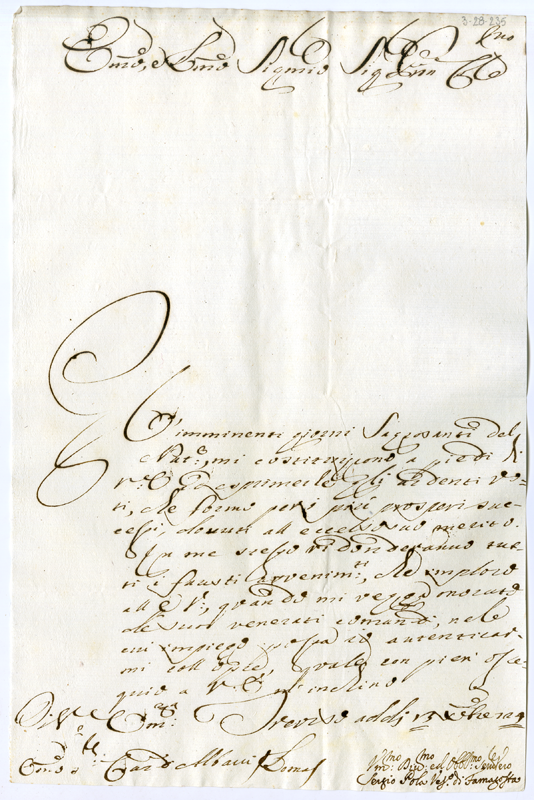 3-28-235
Emo, e Rmo Sigre Sigre Prone
L'imminenti giorni Sagrosanti del
Nat.e, mi costituiscono a piedi di
V. E. ad esprimerle gli ardenti vo-
ti, che formo per i più prosperi suc-
cessi, dovuti all'eccelso suo merito.
In me stesso ridonderanno tut-
ti i fausti avvenim.ti, che imploro
all'E. V., quando mi vegga onorato
de suoi venerati comandi, nel
cui impiego possa io autenticar-
mi tale, quale con pien osse-
quio a V. E. m'inchino
Di V. E. Treviso addì 13 Xbre
Card. Albani Roma
Vmo Divmo ed Obbmo Servitore
Sergio Pola Vesco di Famagosta